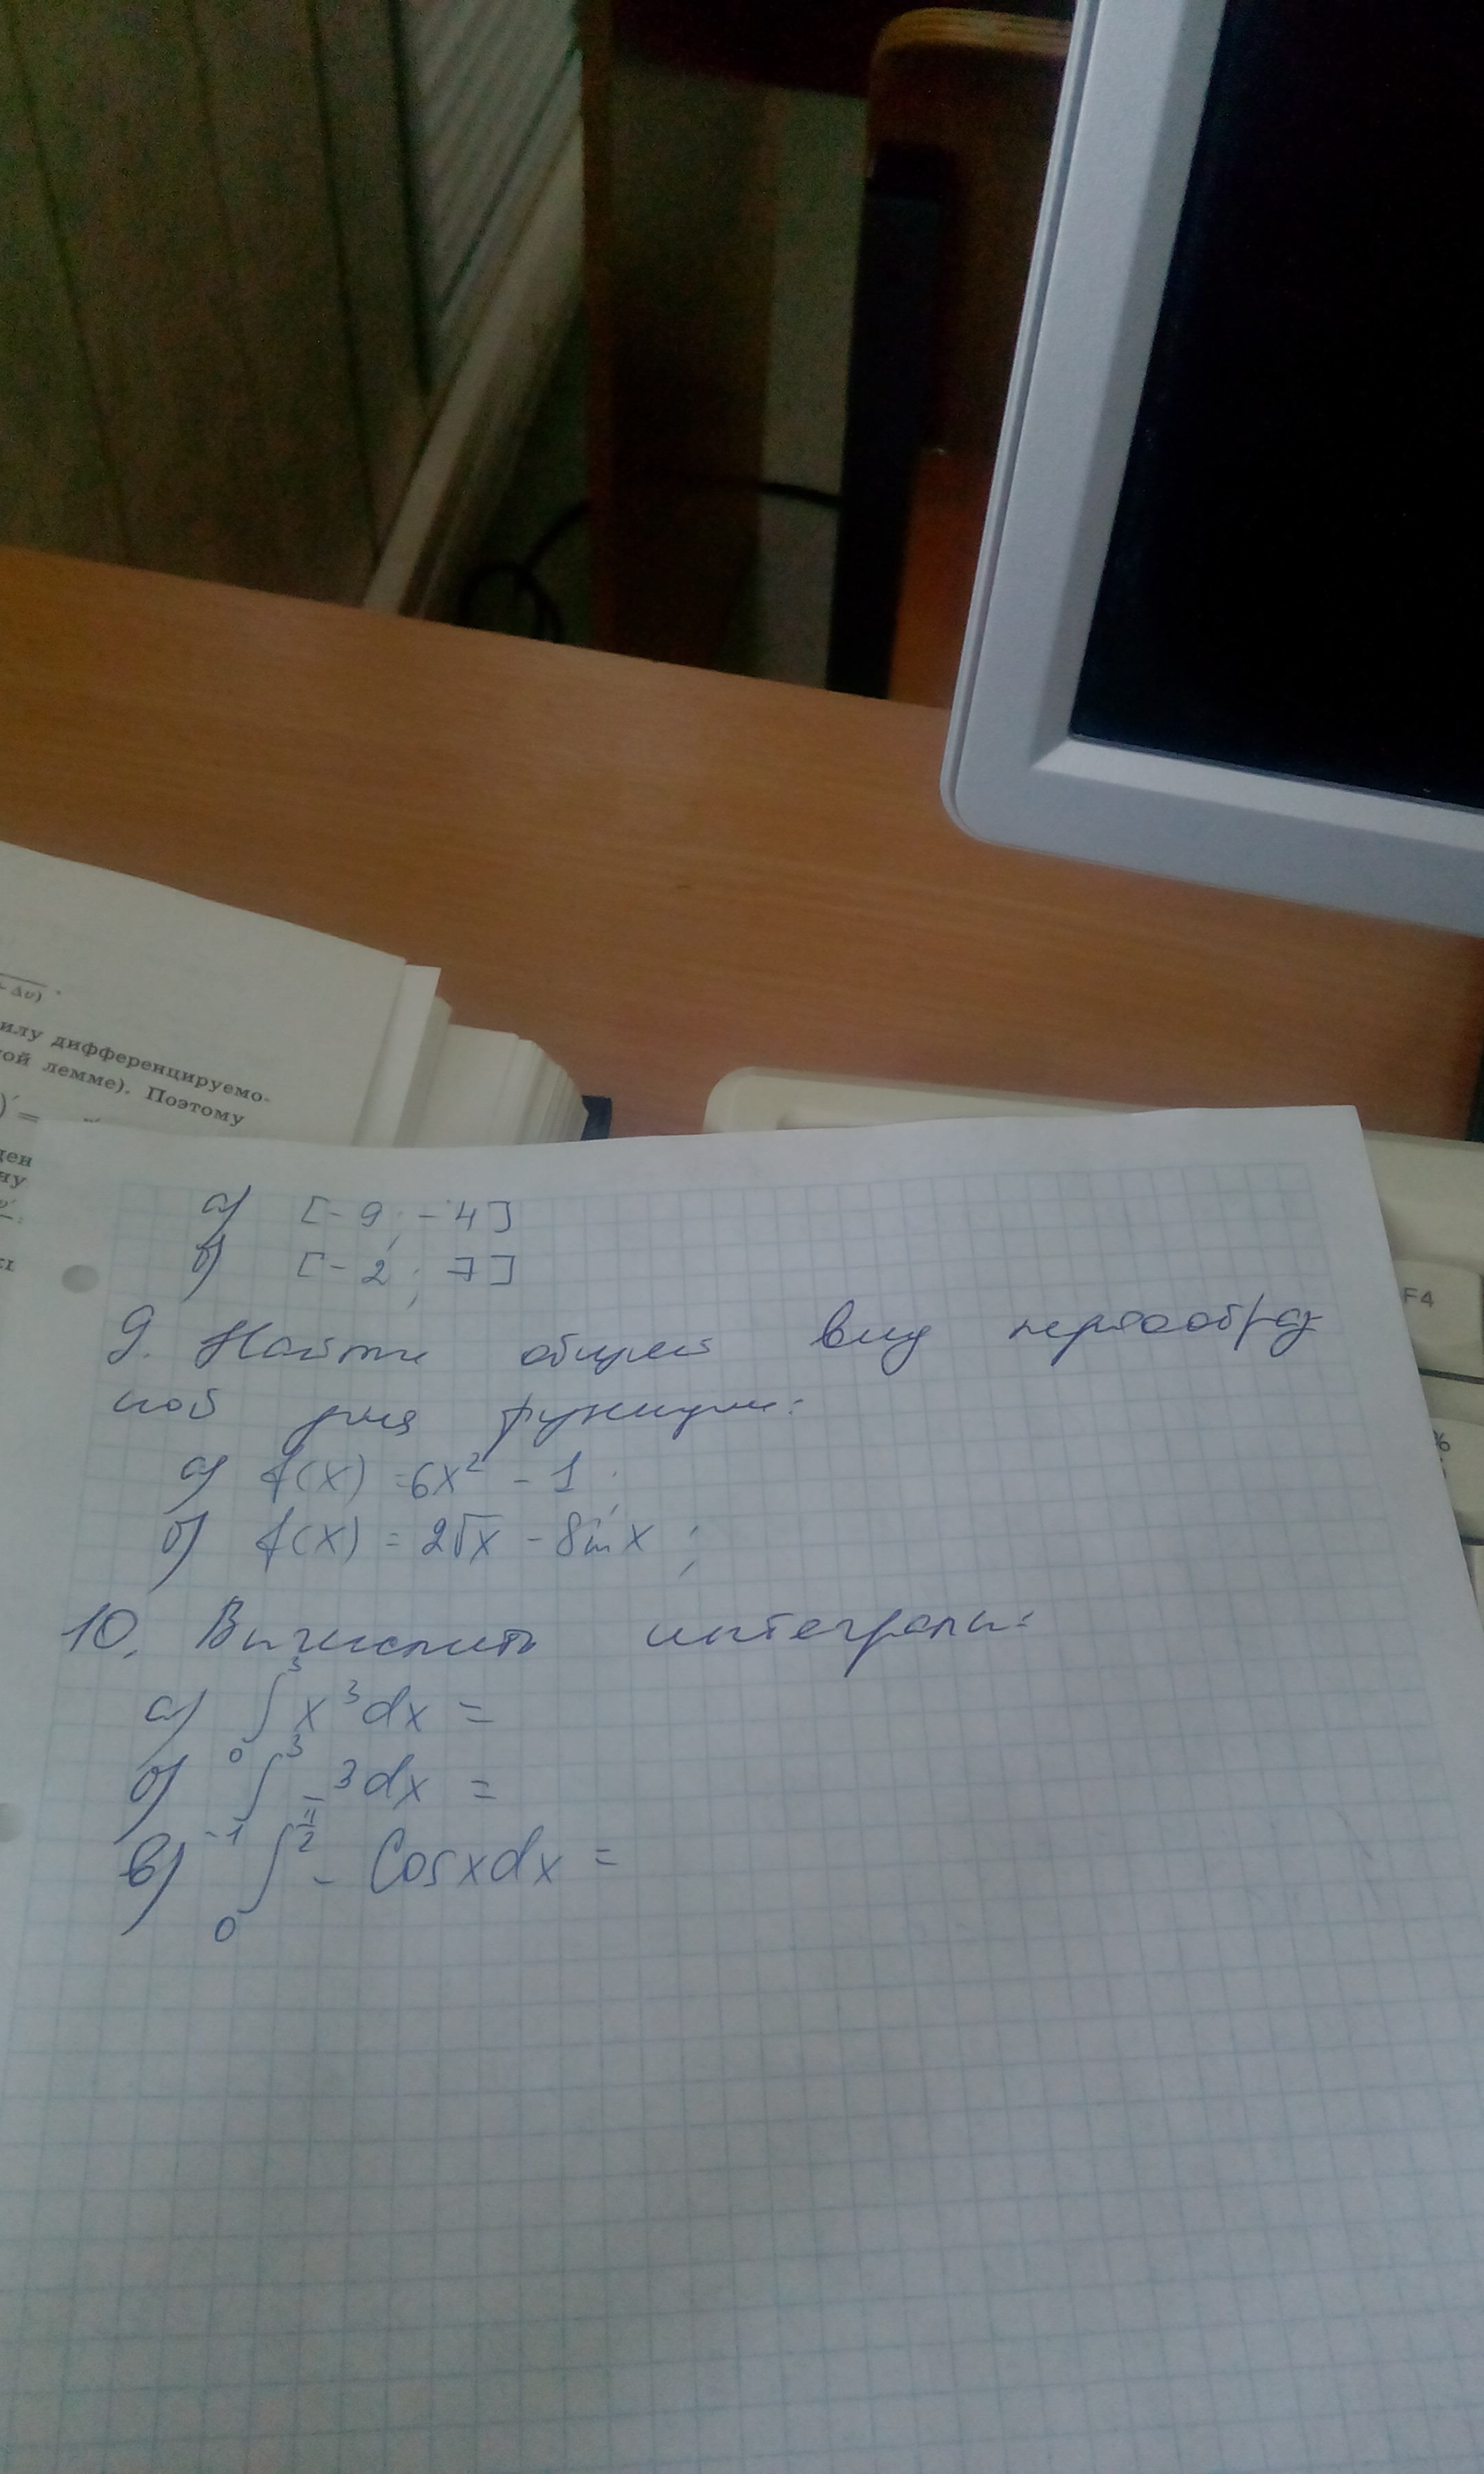 + Δv) .
илу дифференцируемо-
ой лемме). Поэтому
)′ =
ден
ну
а) [-9; -4]
б) [-2; 7]
9. Найти общий вид первообраз
ной для функции:
а) f(x) = 6x² - 1;
б) f(x) = 2√x - sin x;
10. Вычислить интегралы:
а) ∫₀³ x³dx =
б) ∫₋₁³ -3dx =
в) ∫₀^(π/2) - cosxdx =
F4
%